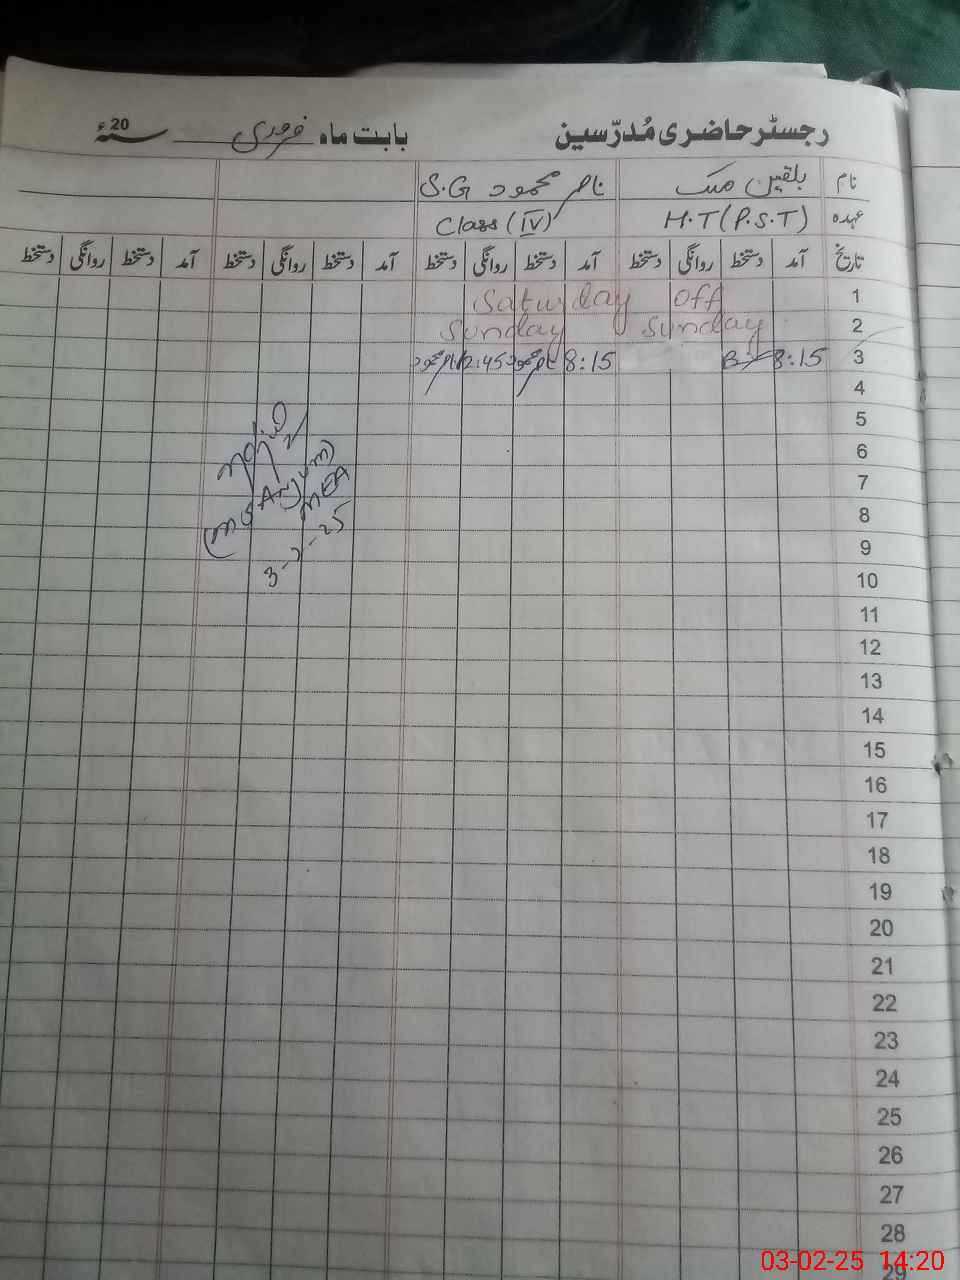 رجسٹر حاضری مُدرّسین بابت ماہ فروری سنہ 20ء
نام بلقیس ملک ناصر محمود S.G
عہدہ H.T (P.S.T) Class (IV)
تاریخ آمد دستخط روانگی دستخط آمد دستخط روانگی دستخط آمد دستخط روانگی دستخط آمد دستخط روانگی دستخط
1 Saturday off
2 Sunday Sunday
3 8:15 8:15 ناصر محمود 12:45 ناصر محمود
4
5
6
7
8
9
10
11
12
13
14
15
16
17
18
19
20
21
22
23
24
25
26
27
28
29
MEA
3-2-25
03-02-25 14:20